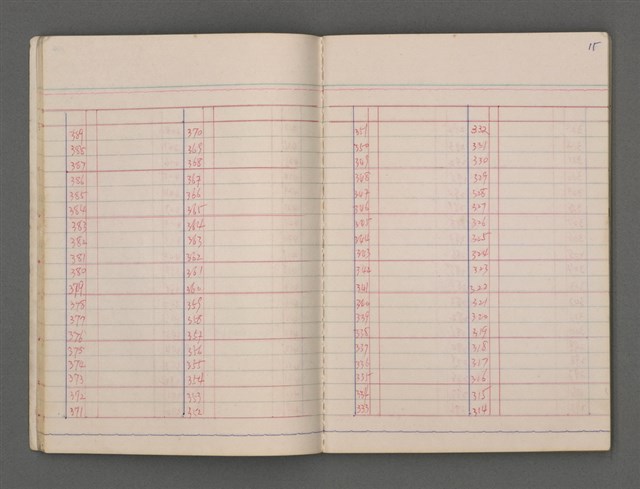 15
389
388
387
386
385
384
383
382
381
380
379
378
377
376
375
374
373
372
371
370
369
368
367
366
365
364
363
362
361
360
359
358
357
356
355
354
353
352
351
350
349
348
347
346
345
344
343
342
341
340
339
338
337
336
335
334
333
332
331
330
329
328
327
326
325
324
323
322
321
320
319
318
317
316
315
314